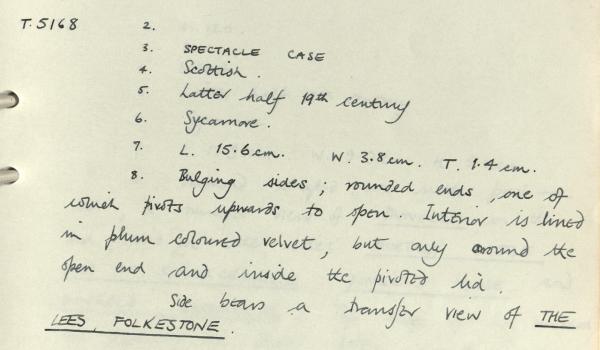 T.5168 2.
3. SPECTACLE CASE
4. Scottish.
5. Latter half 19th century
6. Sycamore.
7. L. 15.6cm. W. 3.8cm. T. 1.4cm.
8. Bulging sides; rounded ends, one of
which pivots upwards to open. Interior is lined
in plum coloured velvet, but only around the
open end and inside the pivoted lid.
Side bears a transfer view of THE
LEES, FOLKESTONE.